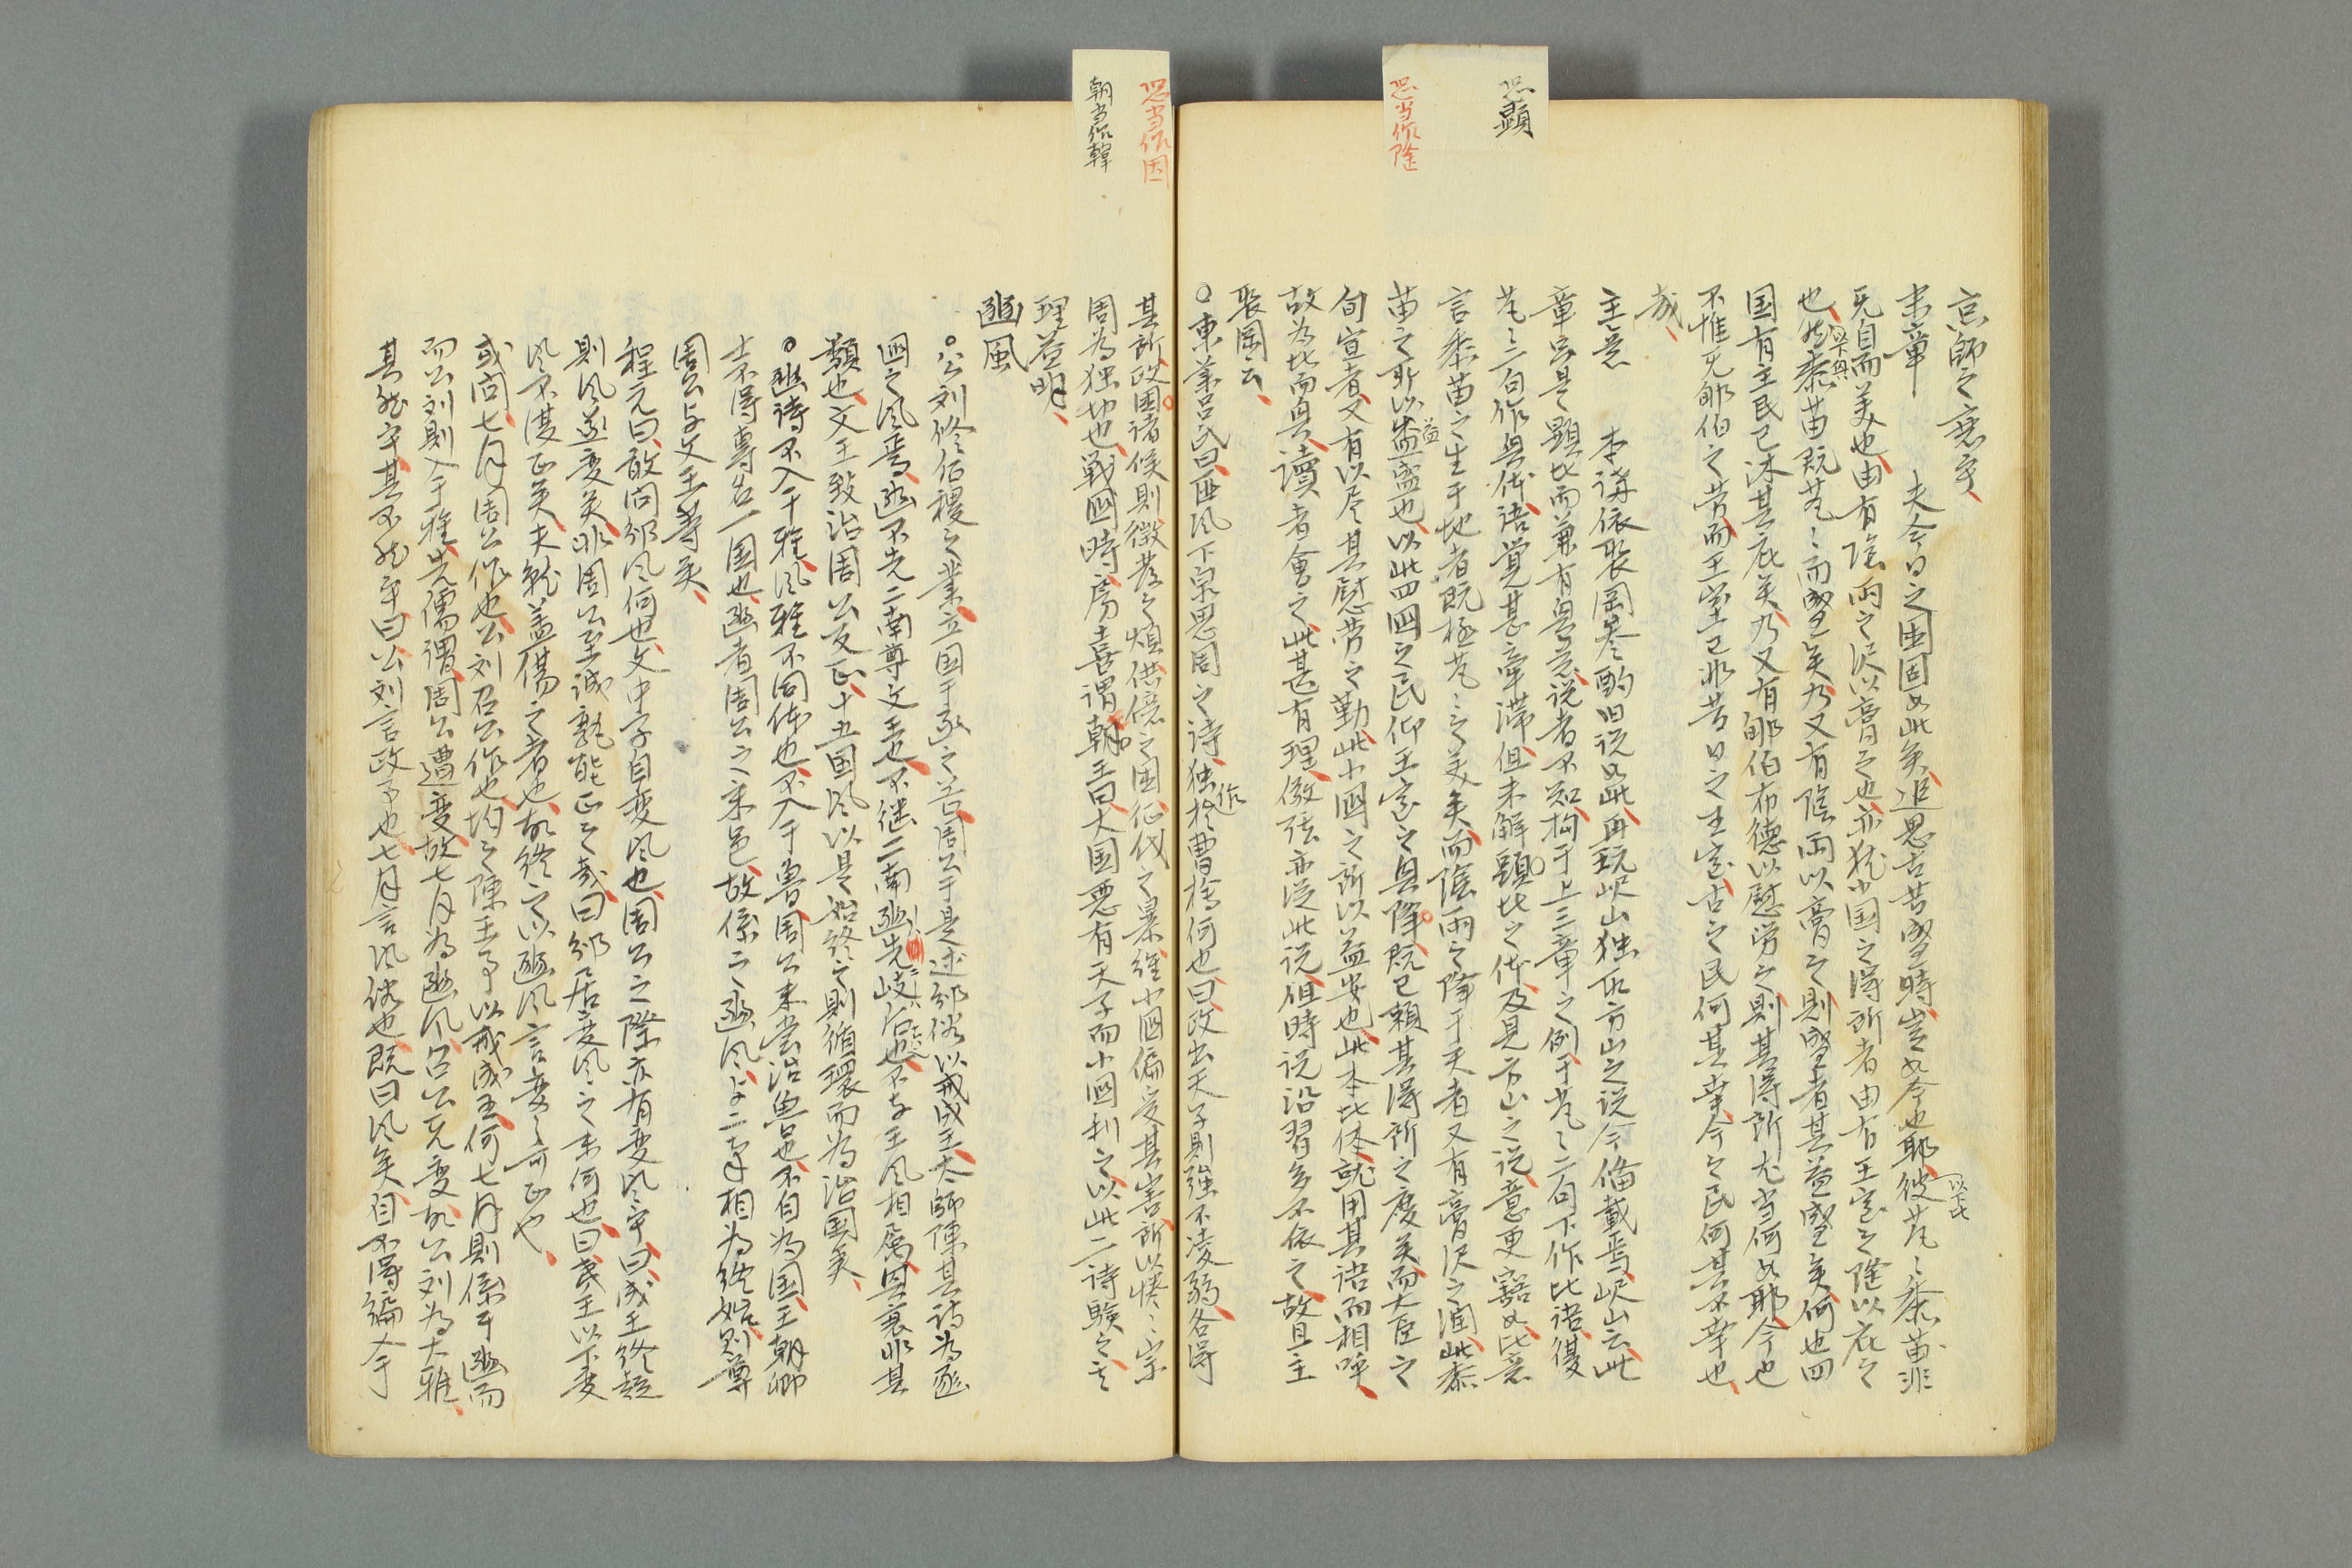 恐顕
恐当作隆
恐当作因
朝当作韓
京師之衰乎
末章 夫今日之困固如此矣追思古昔盛時豈如今也耶彼芃〻黍苗非
以下比
无自而美也由有陰雨之沢以膏之也亦犹小国之得所者由有王室之隆以庇之
也然黍苗既芃〻而盛矣乃又有陰雨以膏之則盛者其益盛矣何也四
以下興
国有王民已沐其庇矣乃又有郇伯布徳以慰労之則其得所尤当何如耶今也
不惟无郇伯之労而王室已非昔日之王室古之民何其幸今之民何其不幸也
哉
主意 本講依裴罔参酌旧説如此再玩岷山独取方山之説今俻載焉岷山云此
章只是顕比而兼有興意説者不知拘于上三章之例于芃〻二句下作比語復
芃〻二句作興体語覚甚牽滞但未解顕比之体及見方山之説意更豁如比意
言黍苗之生于地者既極芃〻之美矣而陰雨之降于天者又有膏沢之潤此黍
苗之所以益盛也以此四国之民仰王室之興降既已頼其得所之慶矣而大臣之
益
旬宣者又有以尽其慰労之勤此小国之所以益安也此本比体就用其語而相呼
故為比而興読者會之此甚有理傲弦亦従此説但時説沿習多不依之故且主
裴罔云
○東莱呂氏曰匪風下泉思周之詩独於曹檜何也曰政出天子則強不凌弱各得
作
其所政困諸侯則徴発之煩供億之困征伐之暴経小国偏受其害所以惓〻宗
周為独切也戦国時房喜謂朝王曰大国悪有天子而小国利之以此二詩験之其
理益明
豳風
○公刘修后稷之業立国于豕之谷周公于是述邠俗以戒成王太師陳其詩為豳
国之風焉豳不先二南尊文王也不継二南豳先岐后也不与王風相属興衰非其
類也文王致治周公反正十五国風以是始終之則循環而為治国矣
○豳詩不入于雅風雅不同体也不入于魯周公未嘗治魯也不自為国王朝卿
士不得専名一国也豳者周公之采邑故係之豳風与二南相為終始則尊
周公与文王等矣
程元曰敢問邠風何也文中子曰変風也周公之際亦有変風乎曰成王終疑
則風遂変矣非周公至誠孰能正之哉曰邠居変風之末何也曰夷王以下変
風不復正矣夫観盖傷之者也故終之以豳風言変之可正也
或問七月周公作也公刘召公作也均之陳王事以戒成王何七月則係于豳而
而公刘則入于雅先儒謂周公遭変故七月為豳風召公无変故公刘為大雅
其然乎其不然乎曰公刘言政事也七月言風俗也既曰風矣自不得編入于